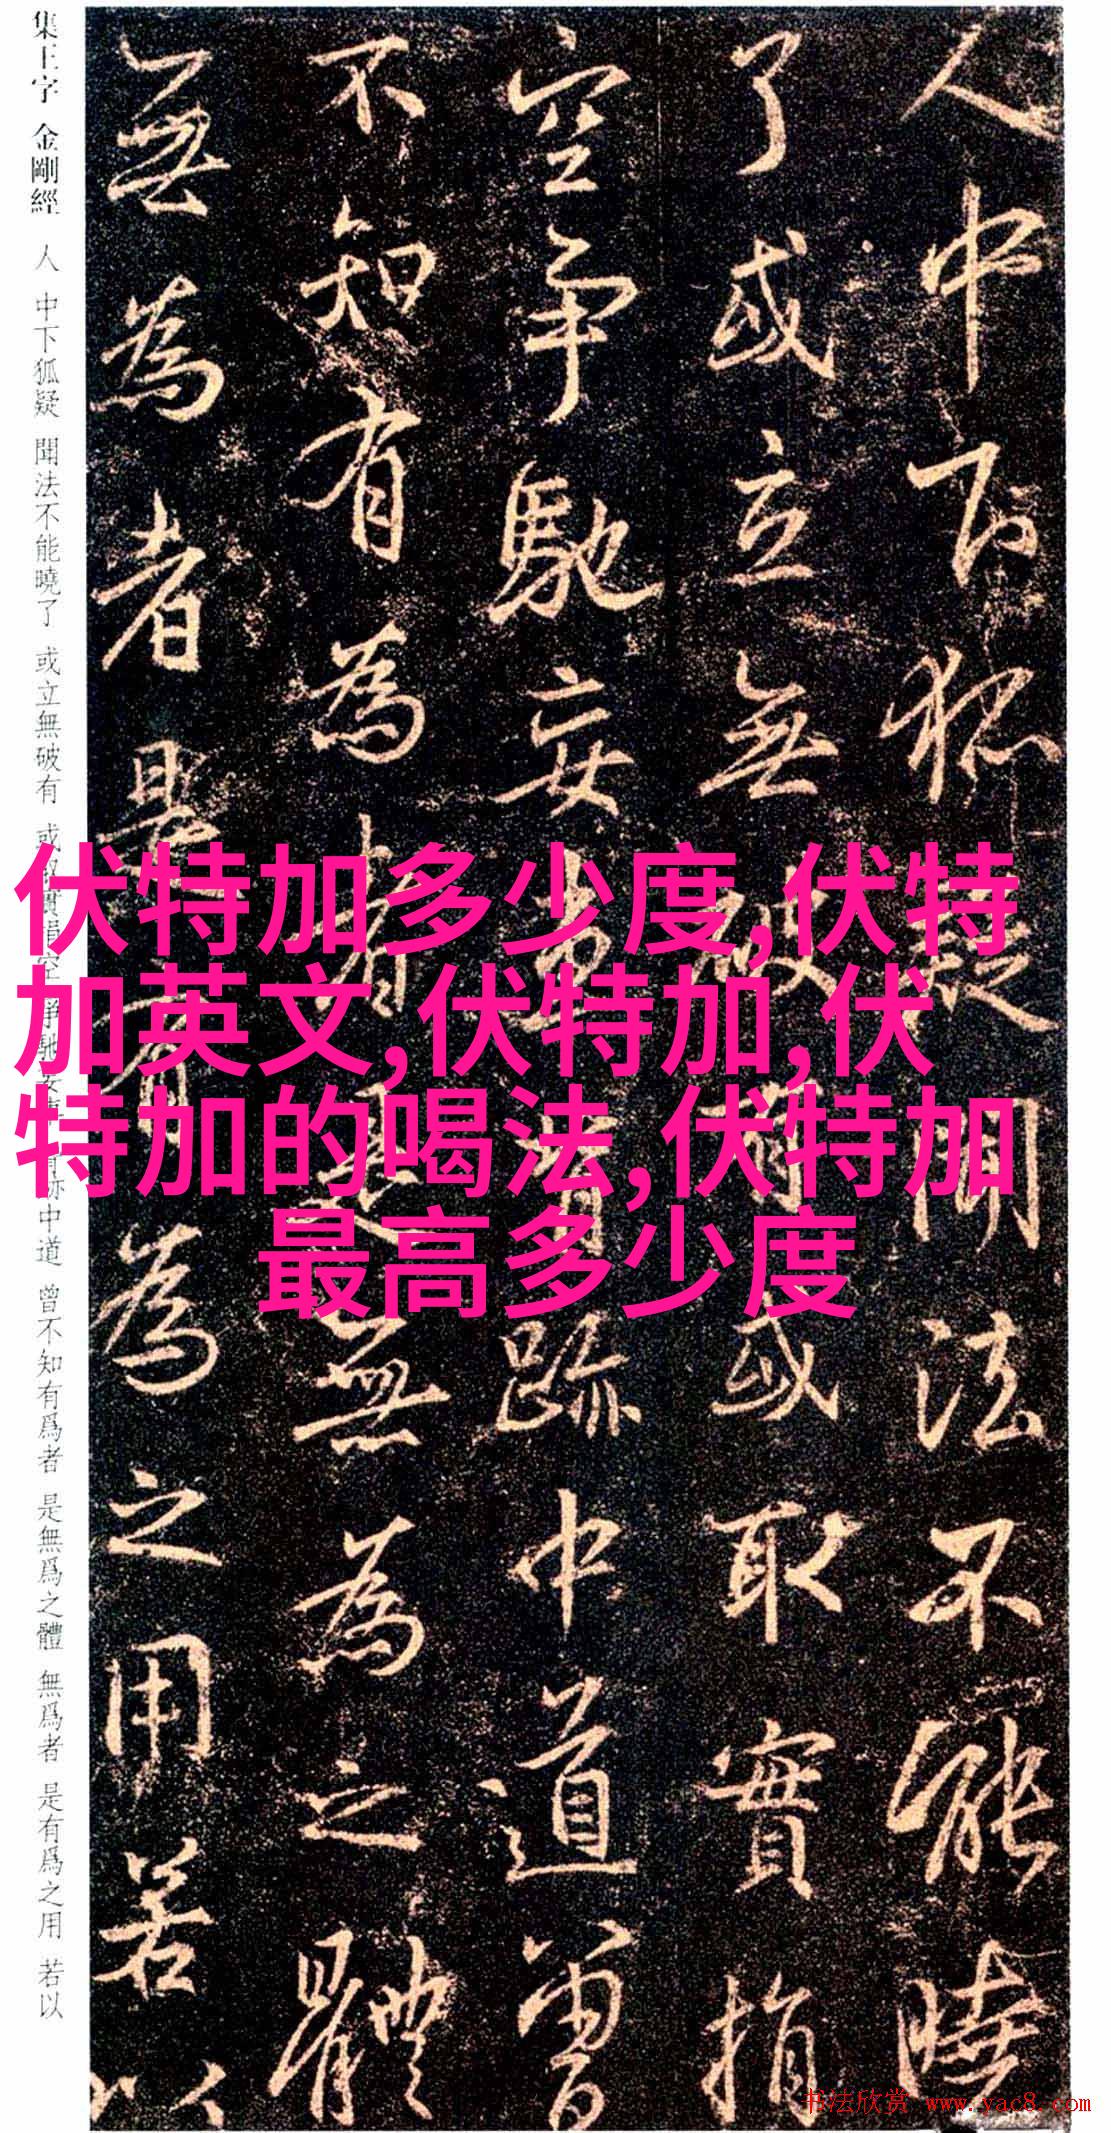 集王字 金剛經 人 中下狐疑 聞法不能曉了 或立無破有 或取實捐空 爭馳妄 中道 曾不知有爲者 是無爲之體 無爲者 是有爲之用 若以
人中下狐疑聞法不能曉
了或立無破有或取實捐
空爭馳妄中道曾
不知有為者是無為之體
無為者是有為之用若以
伏特加多少度,伏特
加英文,伏特加,伏
特加的喝法,伏特加
最高多少度
书法欣赏 www.yac8.com